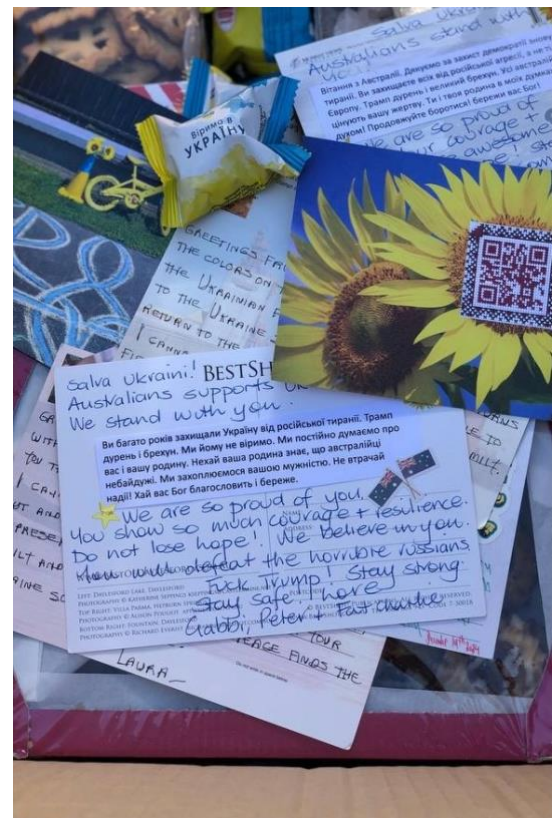 Salva Ukrai
Australians stand with
you!
Вітання з Австралії. Дякуємо за захист демократії
тиранії. Ви захищаєте всіх від російської агресії, а не т
Європу. Трамп дурень і великий брехун. Усі австралій
цінують вашу жертву. Ти і твоя родина в моїх думка
духом! Продовжуйте боротися! бережи вас Бог!
We are so proud of
courage +
awesome
Віримо в
УКРАЇНУ
GREETINGS FR
THE COLORS ON
THE UKRAINIAN F
TO THE UKRAINE
RETURN TO THE
I CANNO
Salva Ukraini! BESTSH
Australians supports
We stand with you.
Ви багато років захищали Україну від російської тиранії. Трамп
дурень і брехун. Ми йому не віримо. Ми постійно думаємо про
вас і вашу родину. Нехай ваша родина знає, що австралійці
небайдужі. Ми захоплюємося вашою мужністю. Не втрачай
надії! Хай вас Бог благословить і береже.
We are so proud of you.
You show so much courage + resilience.
NAME
ADDRESS
Do not lose hope! We believe in you.
You will defeat the horrible russians.
Fuck Trump! Stay strong.
LEFT: DAYLESFORD LAKE, DAYLESFORD
Stay safe! Love
TOP RIGHT: VILLA PARMA, HEPBURN SPRINGS
Gabbi, Peter + Fast Charlie
BOTTOM RIGHT: FOUNTAIN, DAYLESFORD
WITH
I CAN
AND
PRESE
ILT AND
AINE SO
YOUR
PEACE FINDS THE
LAURA
Do not write in space below